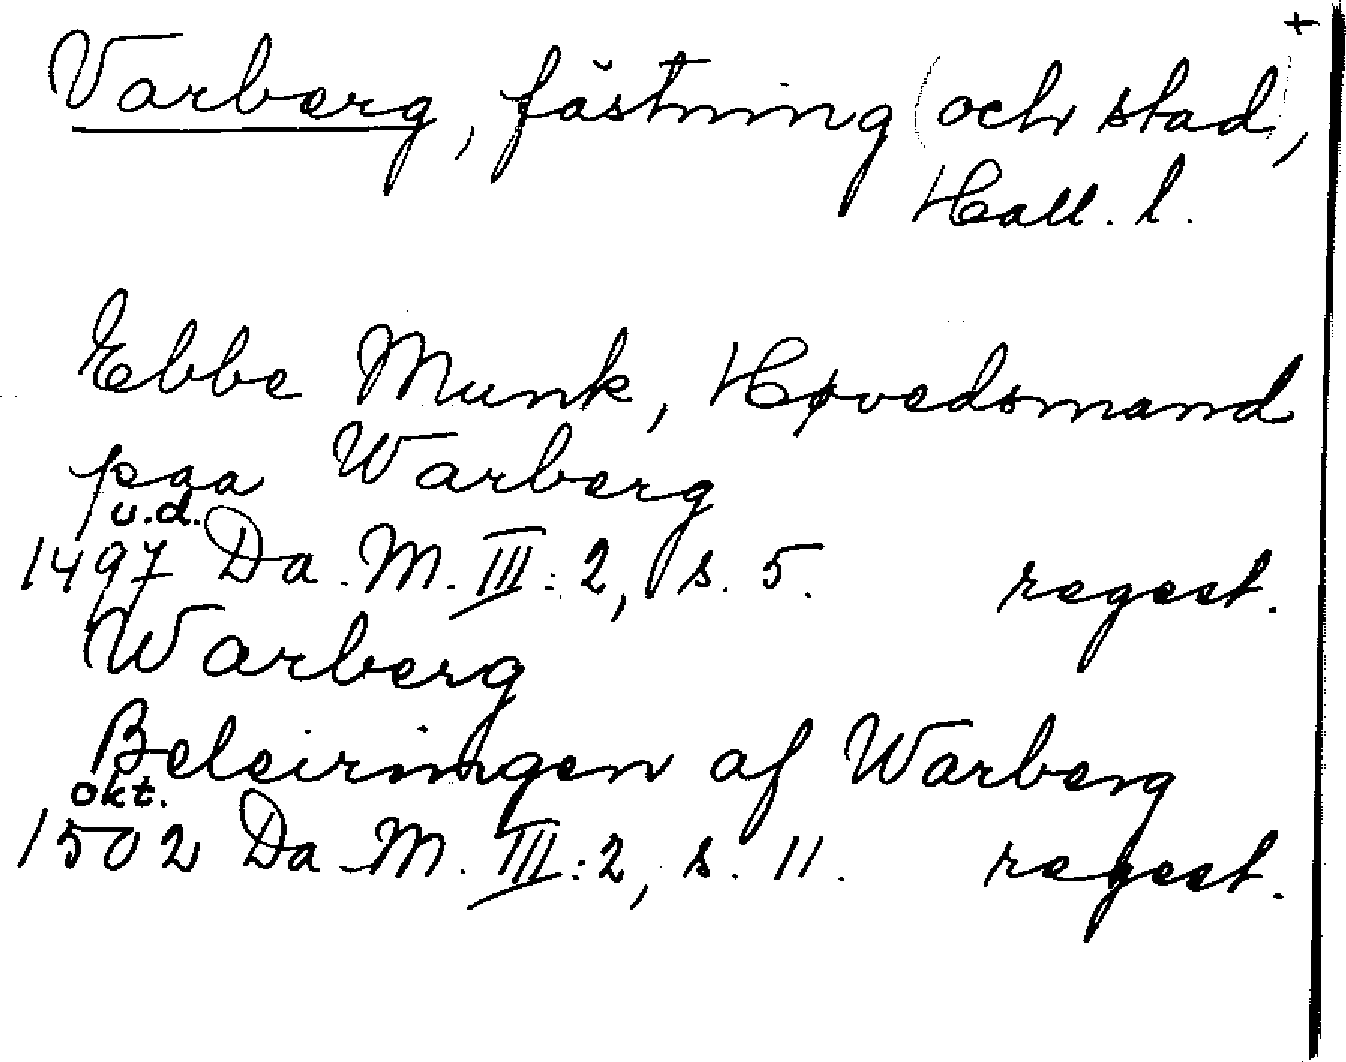 +
Varberg, fästning (och stad),
Hall. l.
Ebbe Munk, Høvedsmand
paa Warberg
u.d.
1497 Da. M. III: 2, s. 5. regest.
Warberg
Beleiringen af Warberg
okt.
1502 Da. M. III: 2, s. 11. regest.